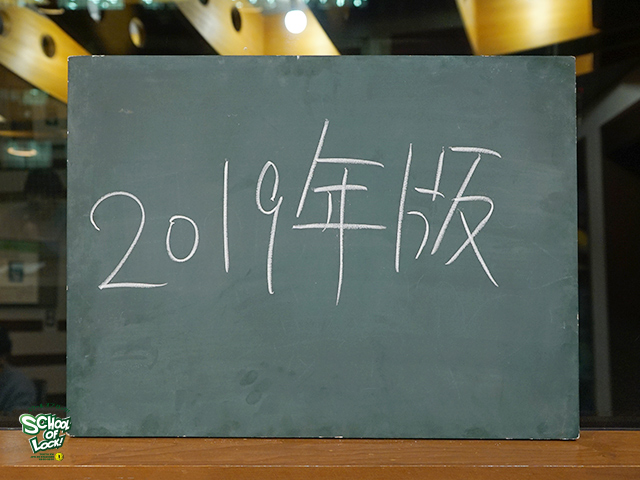 2019年版
SCHOOL
OF
LOCK!